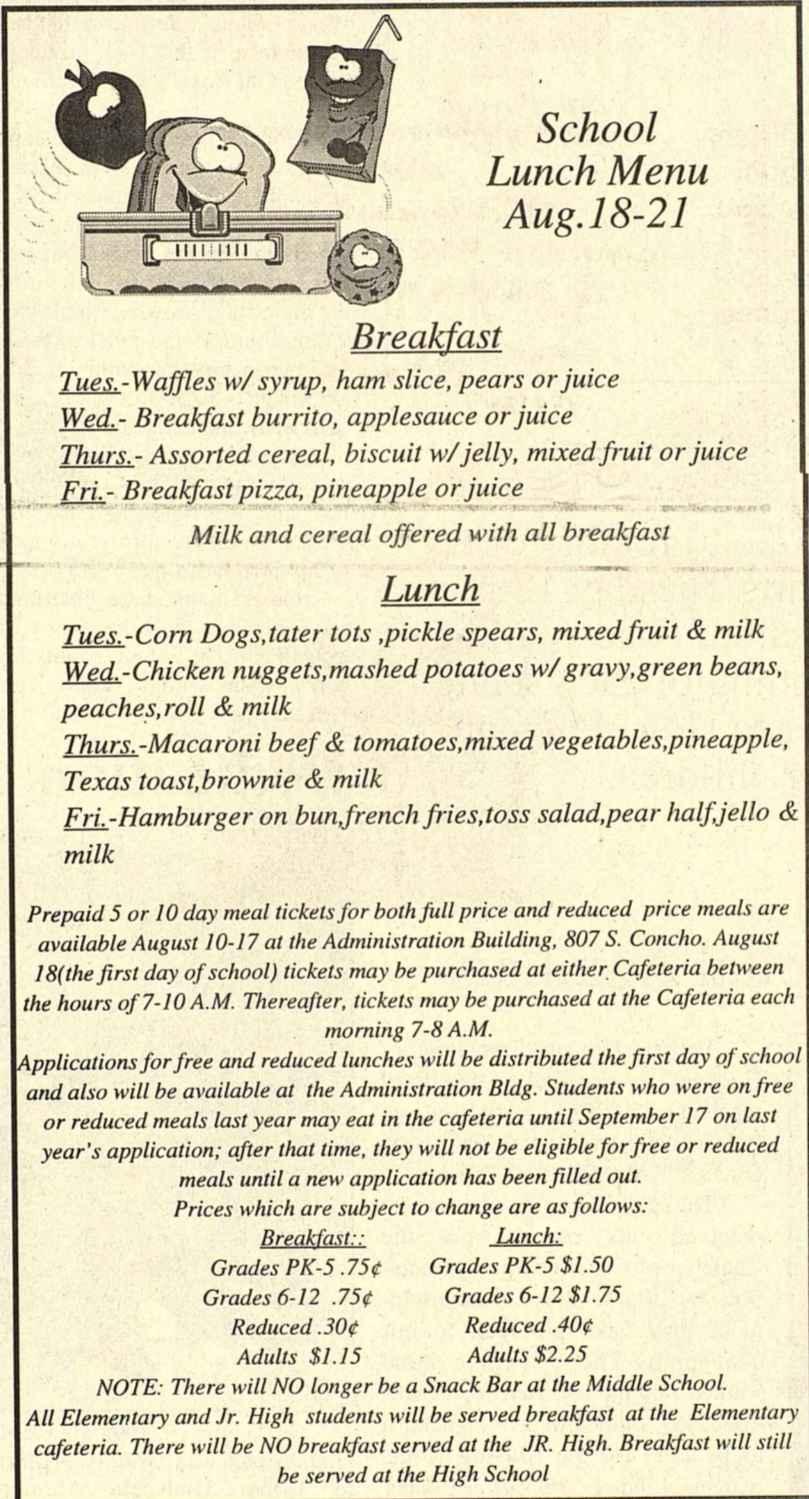 School
Lunch Menu
Aug.18-21
Breakfast
Tues.-Waffles w/ syrup, ham slice, pears or juice
Wed.- Breakfast burrito, applesauce or juice
Thurs.- Assorted cereal, biscuit w/ jelly, mixed fruit or juice
Fri.- Breakfast pizza, pineapple or juice
Milk and cereal offered with all breakfast
Lunch
Tues.-Corn Dogs,tater tots ,pickle spears, mixed fruit & milk
Wed.-Chicken nuggets,mashed potatoes w/ gravy,green beans,
peaches,roll & milk
Thurs.-Macaroni beef & tomatoes,mixed vegetables,pineapple,
Texas toast,brownie & milk
Fri.-Hamburger on bun,french fries,toss salad,pear half,jello &
milk
Prepaid 5 or 10 day meal tickets for both full price and reduced price meals are
available August 10-17 at the Administration Building, 807 S. Concho. August
18(the first day of school) tickets may be purchased at either Cafeteria between
the hours of 7-10 A.M. Thereafter, tickets may be purchased at the Cafeteria each
morning 7-8 A.M.
Applications for free and reduced lunches will be distributed the first day of school
and also will be available at the Administration Bldg. Students who were on free
or reduced meals last year may eat in the cafeteria until September 17 on last
year's application; after that time, they will not be eligible for free or reduced
meals until a new application has been filled out.
Prices which are subject to change are as follows:
Breakfast:: Lunch:
Grades PK-5 .75¢ Grades PK-5 $1.50
Grades 6-12 .75¢ Grades 6-12 $1.75
Reduced .30¢ Reduced .40¢
Adults $1.15 Adults $2.25
NOTE: There will NO longer be a Snack Bar at the Middle School.
All Elementary and Jr. High students will be served breakfast at the Elementary
cafeteria. There will be NO breakfast served at the JR. High. Breakfast will still
be served at the High School